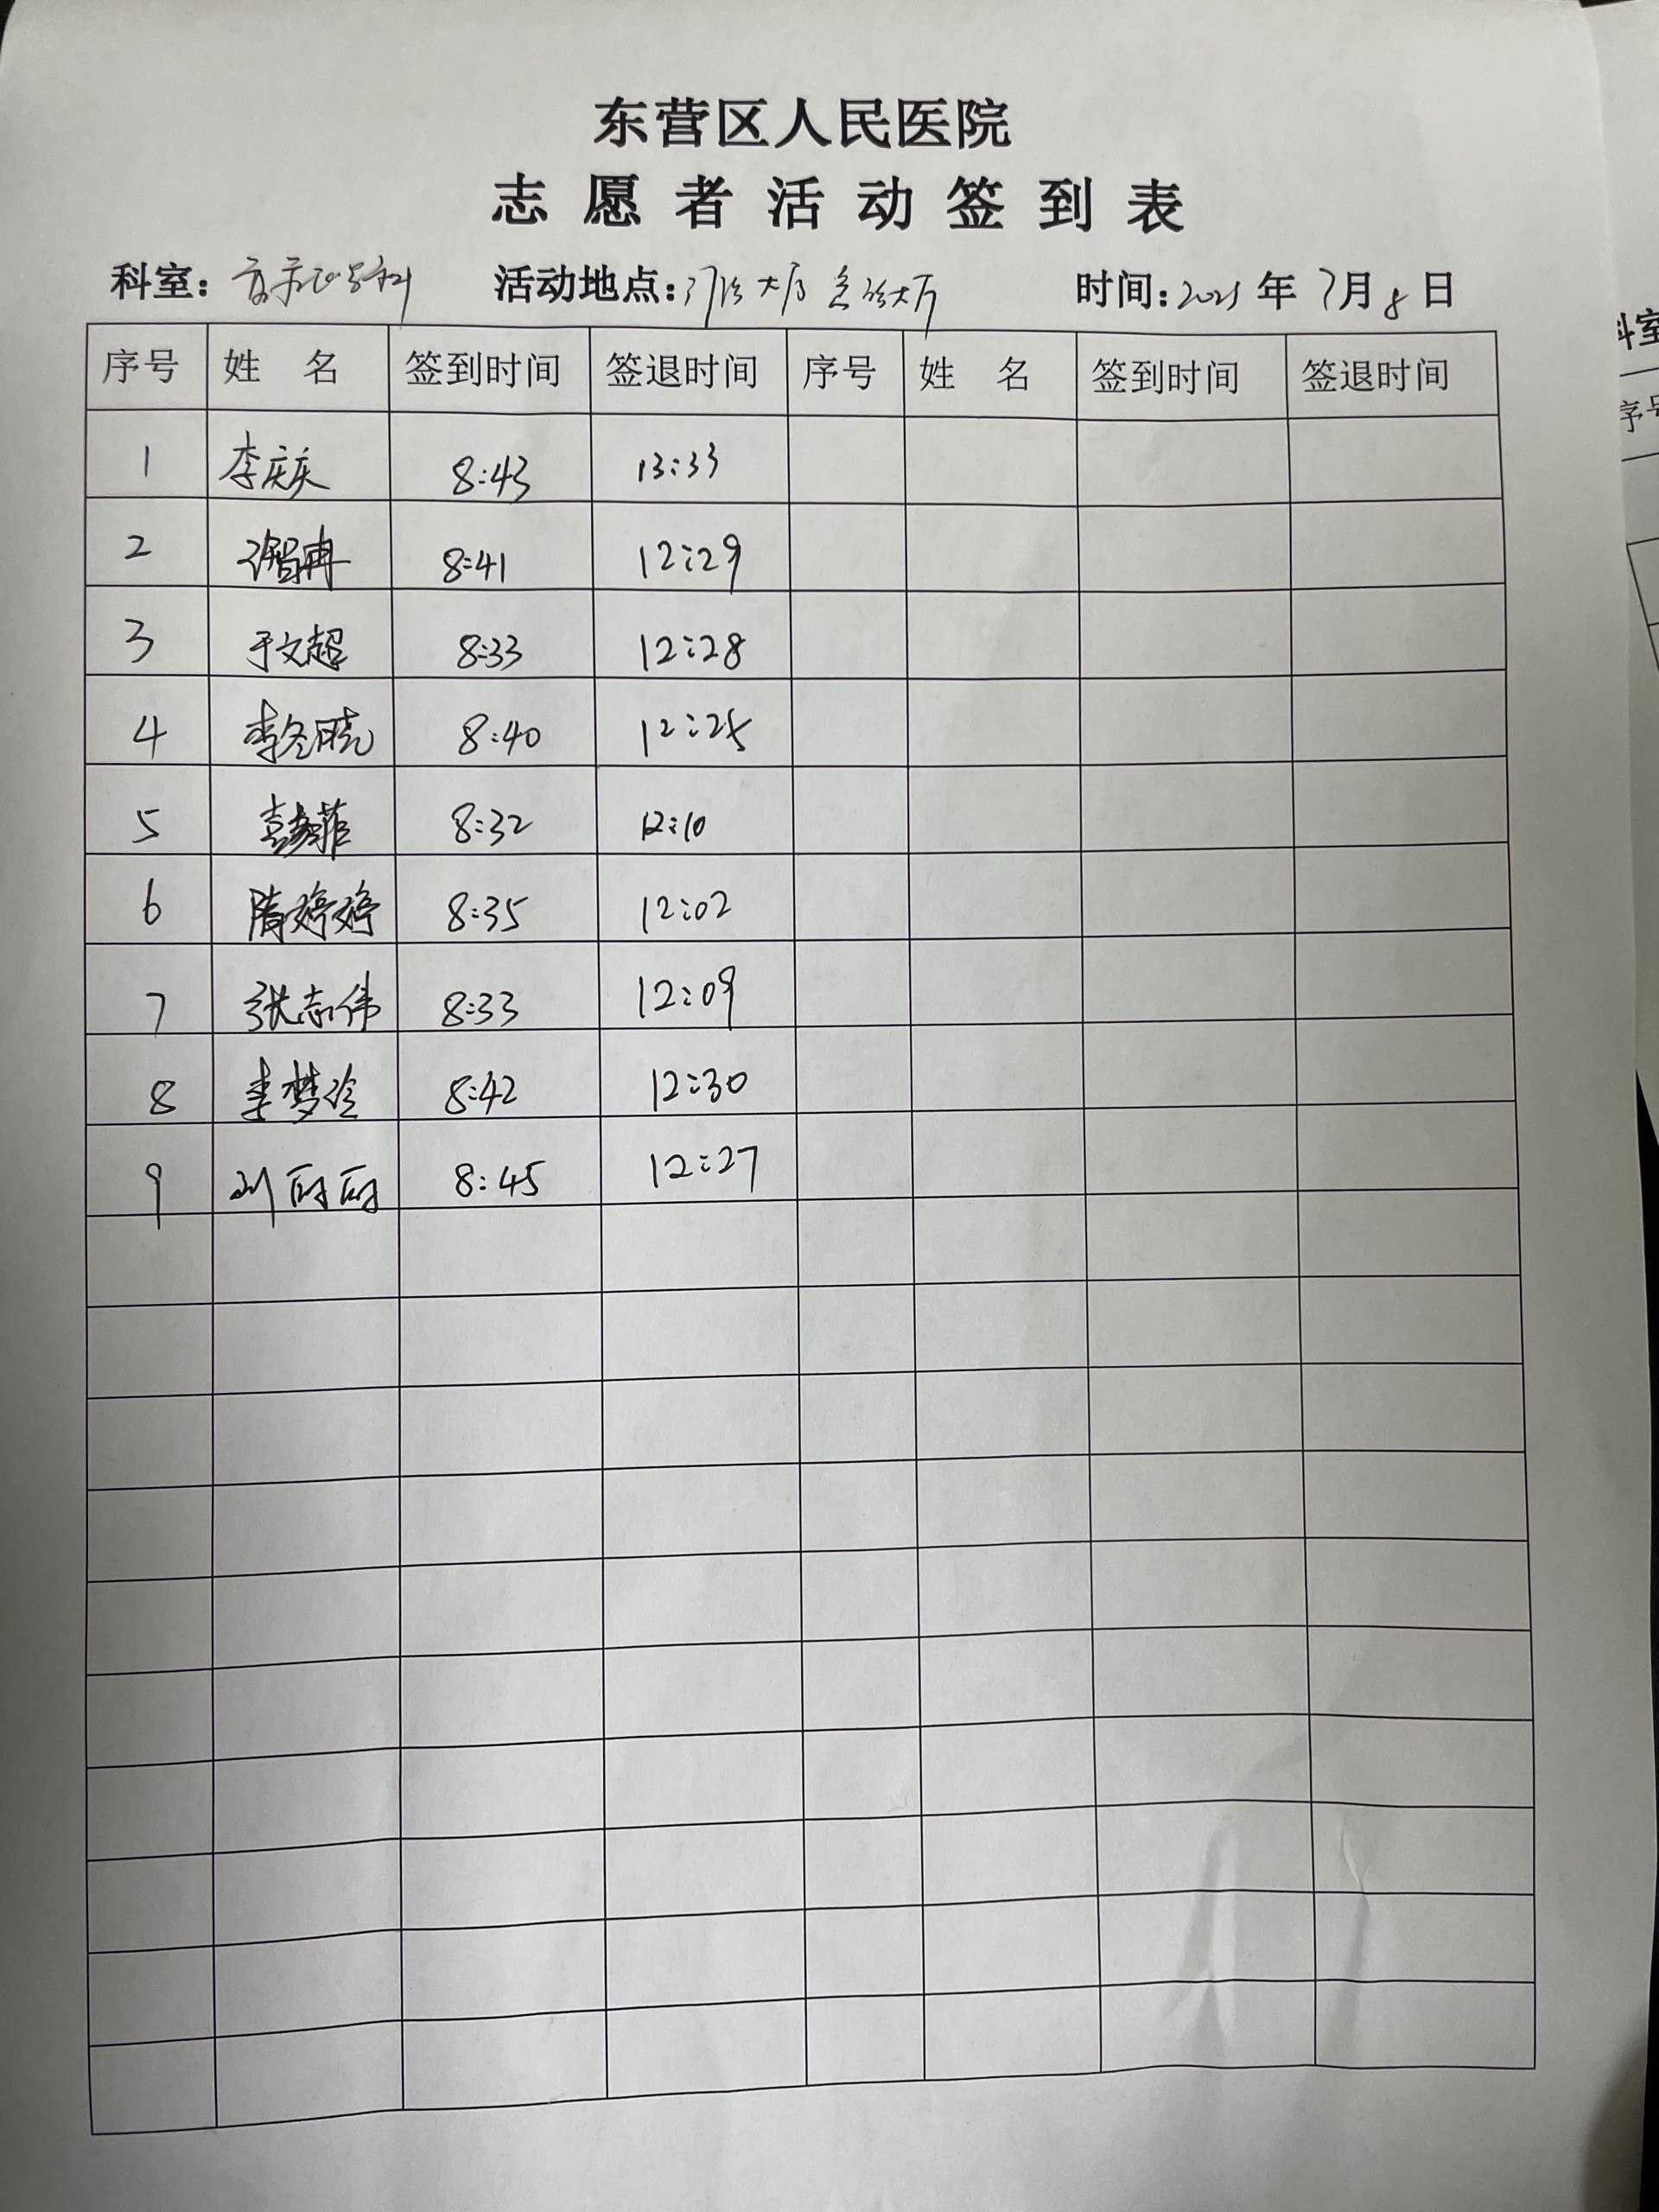 东营区人民医院
志愿者活动签到表
科室: 活动地点:门诊大厅 急诊大厅 时间:2025年7月8日
序号 姓 名 签到时间 签退时间 序号 姓 名 签到时间 签退时间
1 李庆庆 8:43 13:33
2 8:41 12:29
3 于文超 8:33 12:28
4 李冬晓 8:40 12:25
5 彭菲 8:32 12:10
6 隋婷婷 8:35 12:02
7 张志伟 8:33 12:09
8 李梦玲 8:42 12:30
9 刘丽丽 8:45 12:27
科室
序号